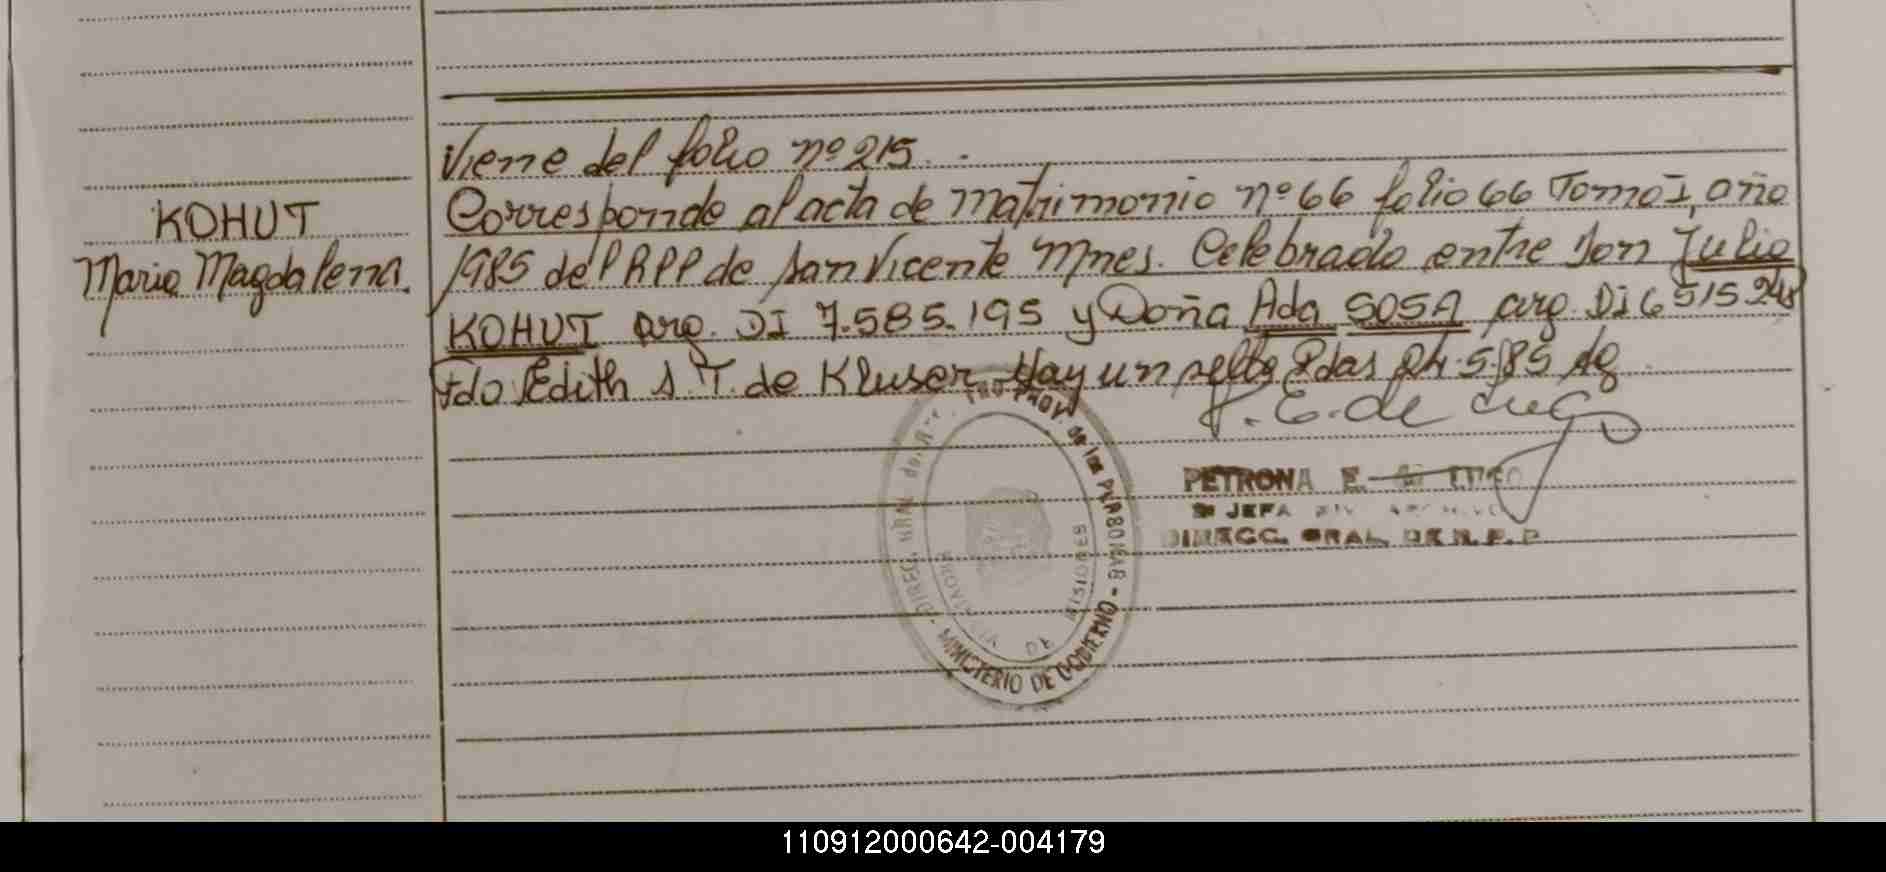 Viene del folio nº 215.
KOHUT
Maria Magdalena.
Corresponde al acta de Matrimonio nº 66 folio 66 Tomo I, año
1985 del RPP de San Vicente Mnes. Celebrado entre Don Julio
KOHUT arg. DI 7.585.195 y Doña Ada SOSA arg. DI 6 515 248
Fdo Edith S. T. de Kluser Hay un sello Pdas 24.5.85
P. E. de Lugo
PETRONA E. LUGO
JEFA DIV.
DIRECC. GRAL. DE R. P. P.
DIREC. GRAL. PROV. de las PERSONAS - MINISTERIO DE GOBIERNO -
PROVINCIA DE MISIONES
110912000642-004179